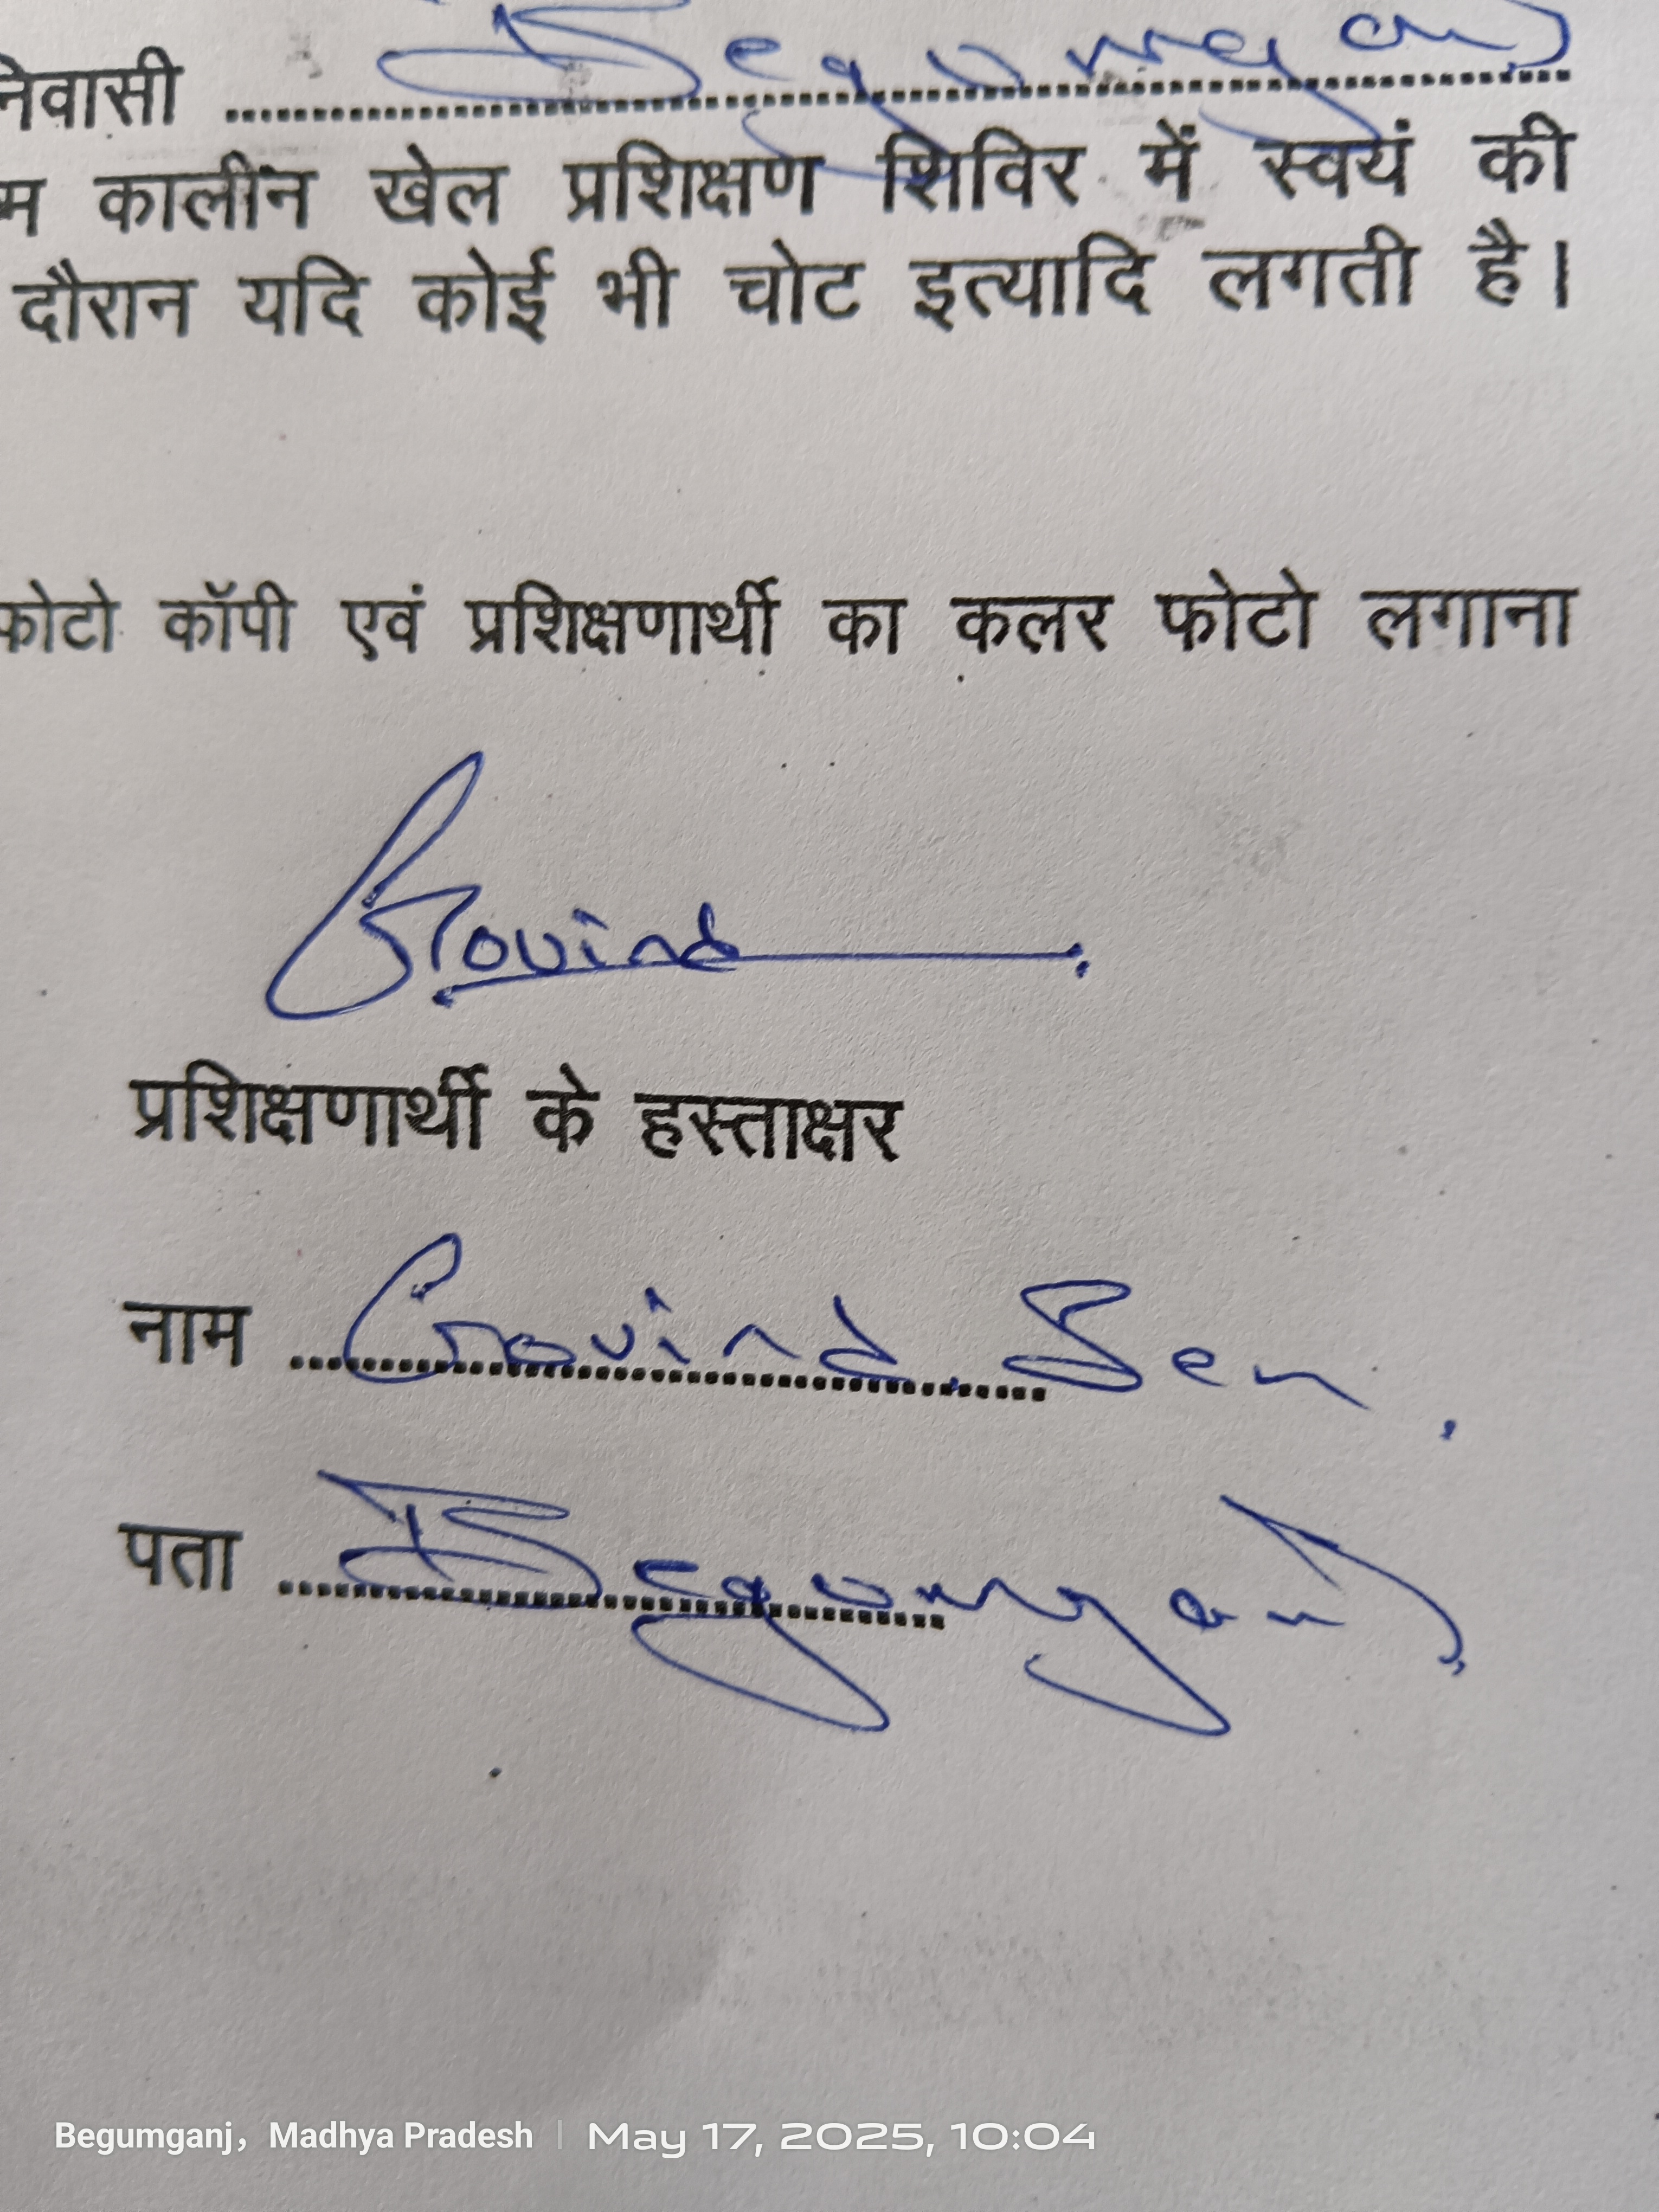 निवासी Begumganj
म कालीन खेल प्रशिक्षण शिविर में स्वयं की
दौरान यदि कोई भी चोट इत्यादि लगती है।
फोटो कॉपी एवं प्रशिक्षणार्थी का कलर फोटो लगाना
Govind
प्रशिक्षणार्थी के हस्ताक्षर
नाम Govind Sen.
पता Begumganj
Begumganj, Madhya Pradesh | May 17, 2025, 10:04